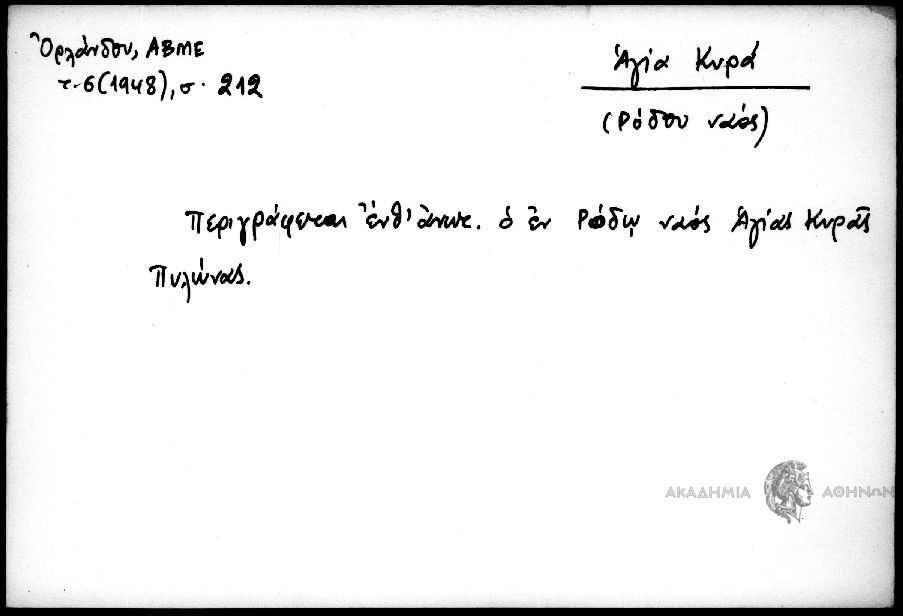 Ὀρλάνδου, ΑΒΜΕ
τ. 6 (1948), σ. 212
Ἁγία Κυρά
(Ρόδου ναός)
Περιγράφεται ἐνθ' ἀνωτ. ὁ ἐν Ρόδῳ ναός Ἁγίας Κυρᾶς
Πυλώνας.
ΑΚΑΔΗΜΙΑ ΑΘΗΝΩΝ